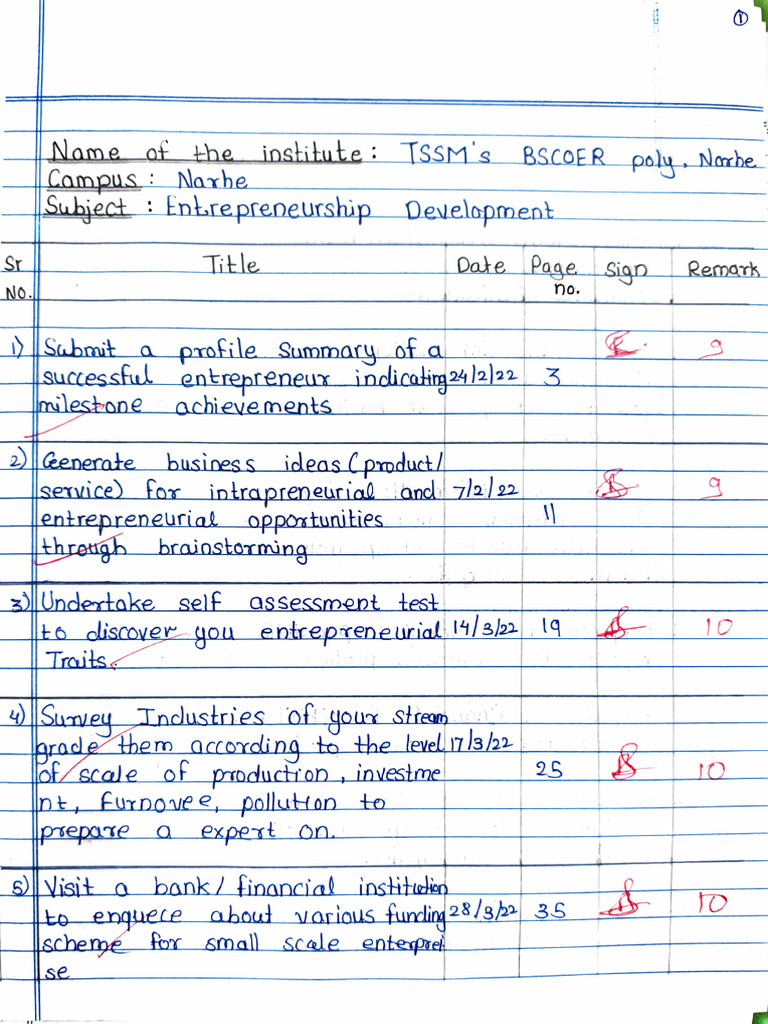 ①
Name of the institute: TSSM's BSCOER poly, Narhe
Campus: Narhe
Subject: Entrepreneurship Development
Sr No. Title Date Page no. Sign Remark
1) Submit a profile Summary of a 9
successful entrepreneur indicating 24/2/22 3
milestone achievements
2) Generate business ideas (product/
service) for intrapreneurial and 7/2/22 9
entrepreneurial opportunities 11
through brainstorming
3) Undertake self assessment test
to discover you entrepreneurial 14/3/22 19 10
Traits.
4) Survey Industries of your stream
grade them according to the level 17/3/22
of scale of production, investme 25 10
nt, furnovee, pollution to
prepare a expert on.
5) Visit a bank/ financial institution
to enquece about various funding 28/3/22 35 10
scheme for small scale enterprei
se